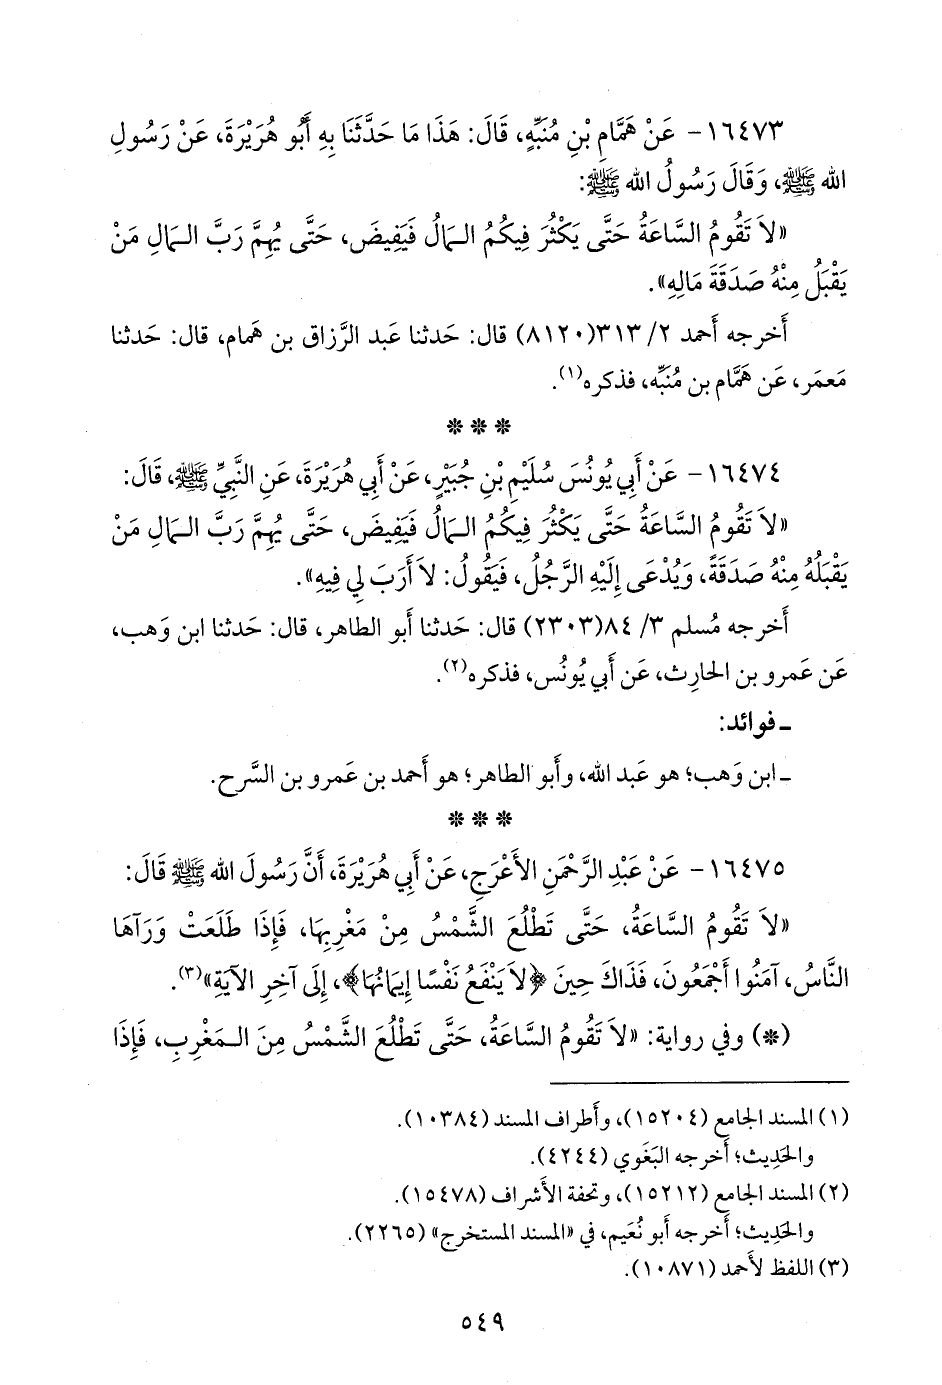 ١٦٤٧٣- عَنْ هَمَّامِ بْنِ مُنَبِّهٍ، قَالَ: هَذَا مَا حَدَّثَنَا بِهِ أَبُو هُرَيْرَةَ، عَنْ رَسُولِ
الله ﷺ، وَقَالَ رَسُولُ الله ﷺ:
«لاَ تَقُومُ السَّاعَةُ حَتَّى يَكْثُرَ فِيكُمُ الـمَالُ فَيَفِيضَ، حَتَّى يُهِمَّ رَبَّ الـمَالِ مَنْ
يَقْبَلُ مِنْهُ صَدَقَةَ مَالِهِ».
أَخرجه أَحمد ٢/ ٣١٣(٨١٢٠) قال: حَدثنا عَبد الرَّزاق بن هَمام، قال: حَدثنا
مَعمَر، عَن هَمَّام بن مُنَبِّه، فذكره(١).
* * *
١٦٤٧٤- عَنْ أَبِي يُونُسَ سُلَيْمِ بْنِ جُبَيْرٍ، عَنْ أَبِي هُرَيْرَةَ، عَنِ النَّبِيِّ ﷺ، قَالَ:
«لاَ تَقُومُ السَّاعَةُ حَتَّى يَكْثُرَ فِيكُمُ الـمَالُ فَيَفِيضَ، حَتَّى يُهِمَّ رَبَّ الـمَالِ مَنْ
يَقْبَلُهُ مِنْهُ صَدَقَةً، وَيُدْعَى إِلَيْهِ الرَّجُلُ، فَيَقُولُ: لاَ أَرَبَ لِي فِيهِ».
أَخرجه مُسلم ٣/ ٨٤(٢٣٠٣) قال: حَدثنا أَبو الطاهر، قال: حَدثنا ابن وَهب،
عَن عَمرو بن الحارِث، عَن أَبي يُونُس، فذكره(٢).
ـ فوائد:
ـ ابن وَهب؛ هو عَبد الله، وأَبو الطاهر؛ هو أَحمد بن عَمرو بن السَّرح.
* * *
١٦٤٧٥- عَنْ عَبْدِ الرَّحْمَنِ الأَعْرَجِ، عَنْ أَبِي هُرَيْرَةَ، أَنَّ رَسُولَ الله ﷺ قَالَ:
«لاَ تَقُومُ السَّاعَةُ، حَتَّى تَطْلُعَ الشَّمْسُ مِنْ مَغْرِبِهَا، فَإِذَا طَلَعَتْ وَرَآهَا
النَّاسُ، آمَنُوا أَجْمَعُونَ، فَذَاكَ حِينَ ﴿لاَ يَنْفَعُ نَفْسًا إِيمَانُهَا﴾، إِلَى آخِرِ الآيَةِ»(٣).
(*) وفي رواية: «لاَ تَقُومُ السَّاعَةُ، حَتَّى تَطْلُعَ الشَّمْسُ مِنَ الـمَغْرِبِ، فَإِذَا
(١) المسند الجامع (١٥٢٠٤)، وأَطراف المسند (١٠٣٨٤).
والحَدِيث؛ أَخرجه البَغَوي (٤٢٤٤).
(٢) المسند الجامع (١٥٢١٢)، وتحفة الأَشراف (١٥٤٧٨).
والحَدِيث؛ أَخرجه أَبو نُعَيم، في «المسند المستخرج» (٢٢٦٥).
(٣) اللفظ لأَحمد (١٠٨٧١).
٥٤٩